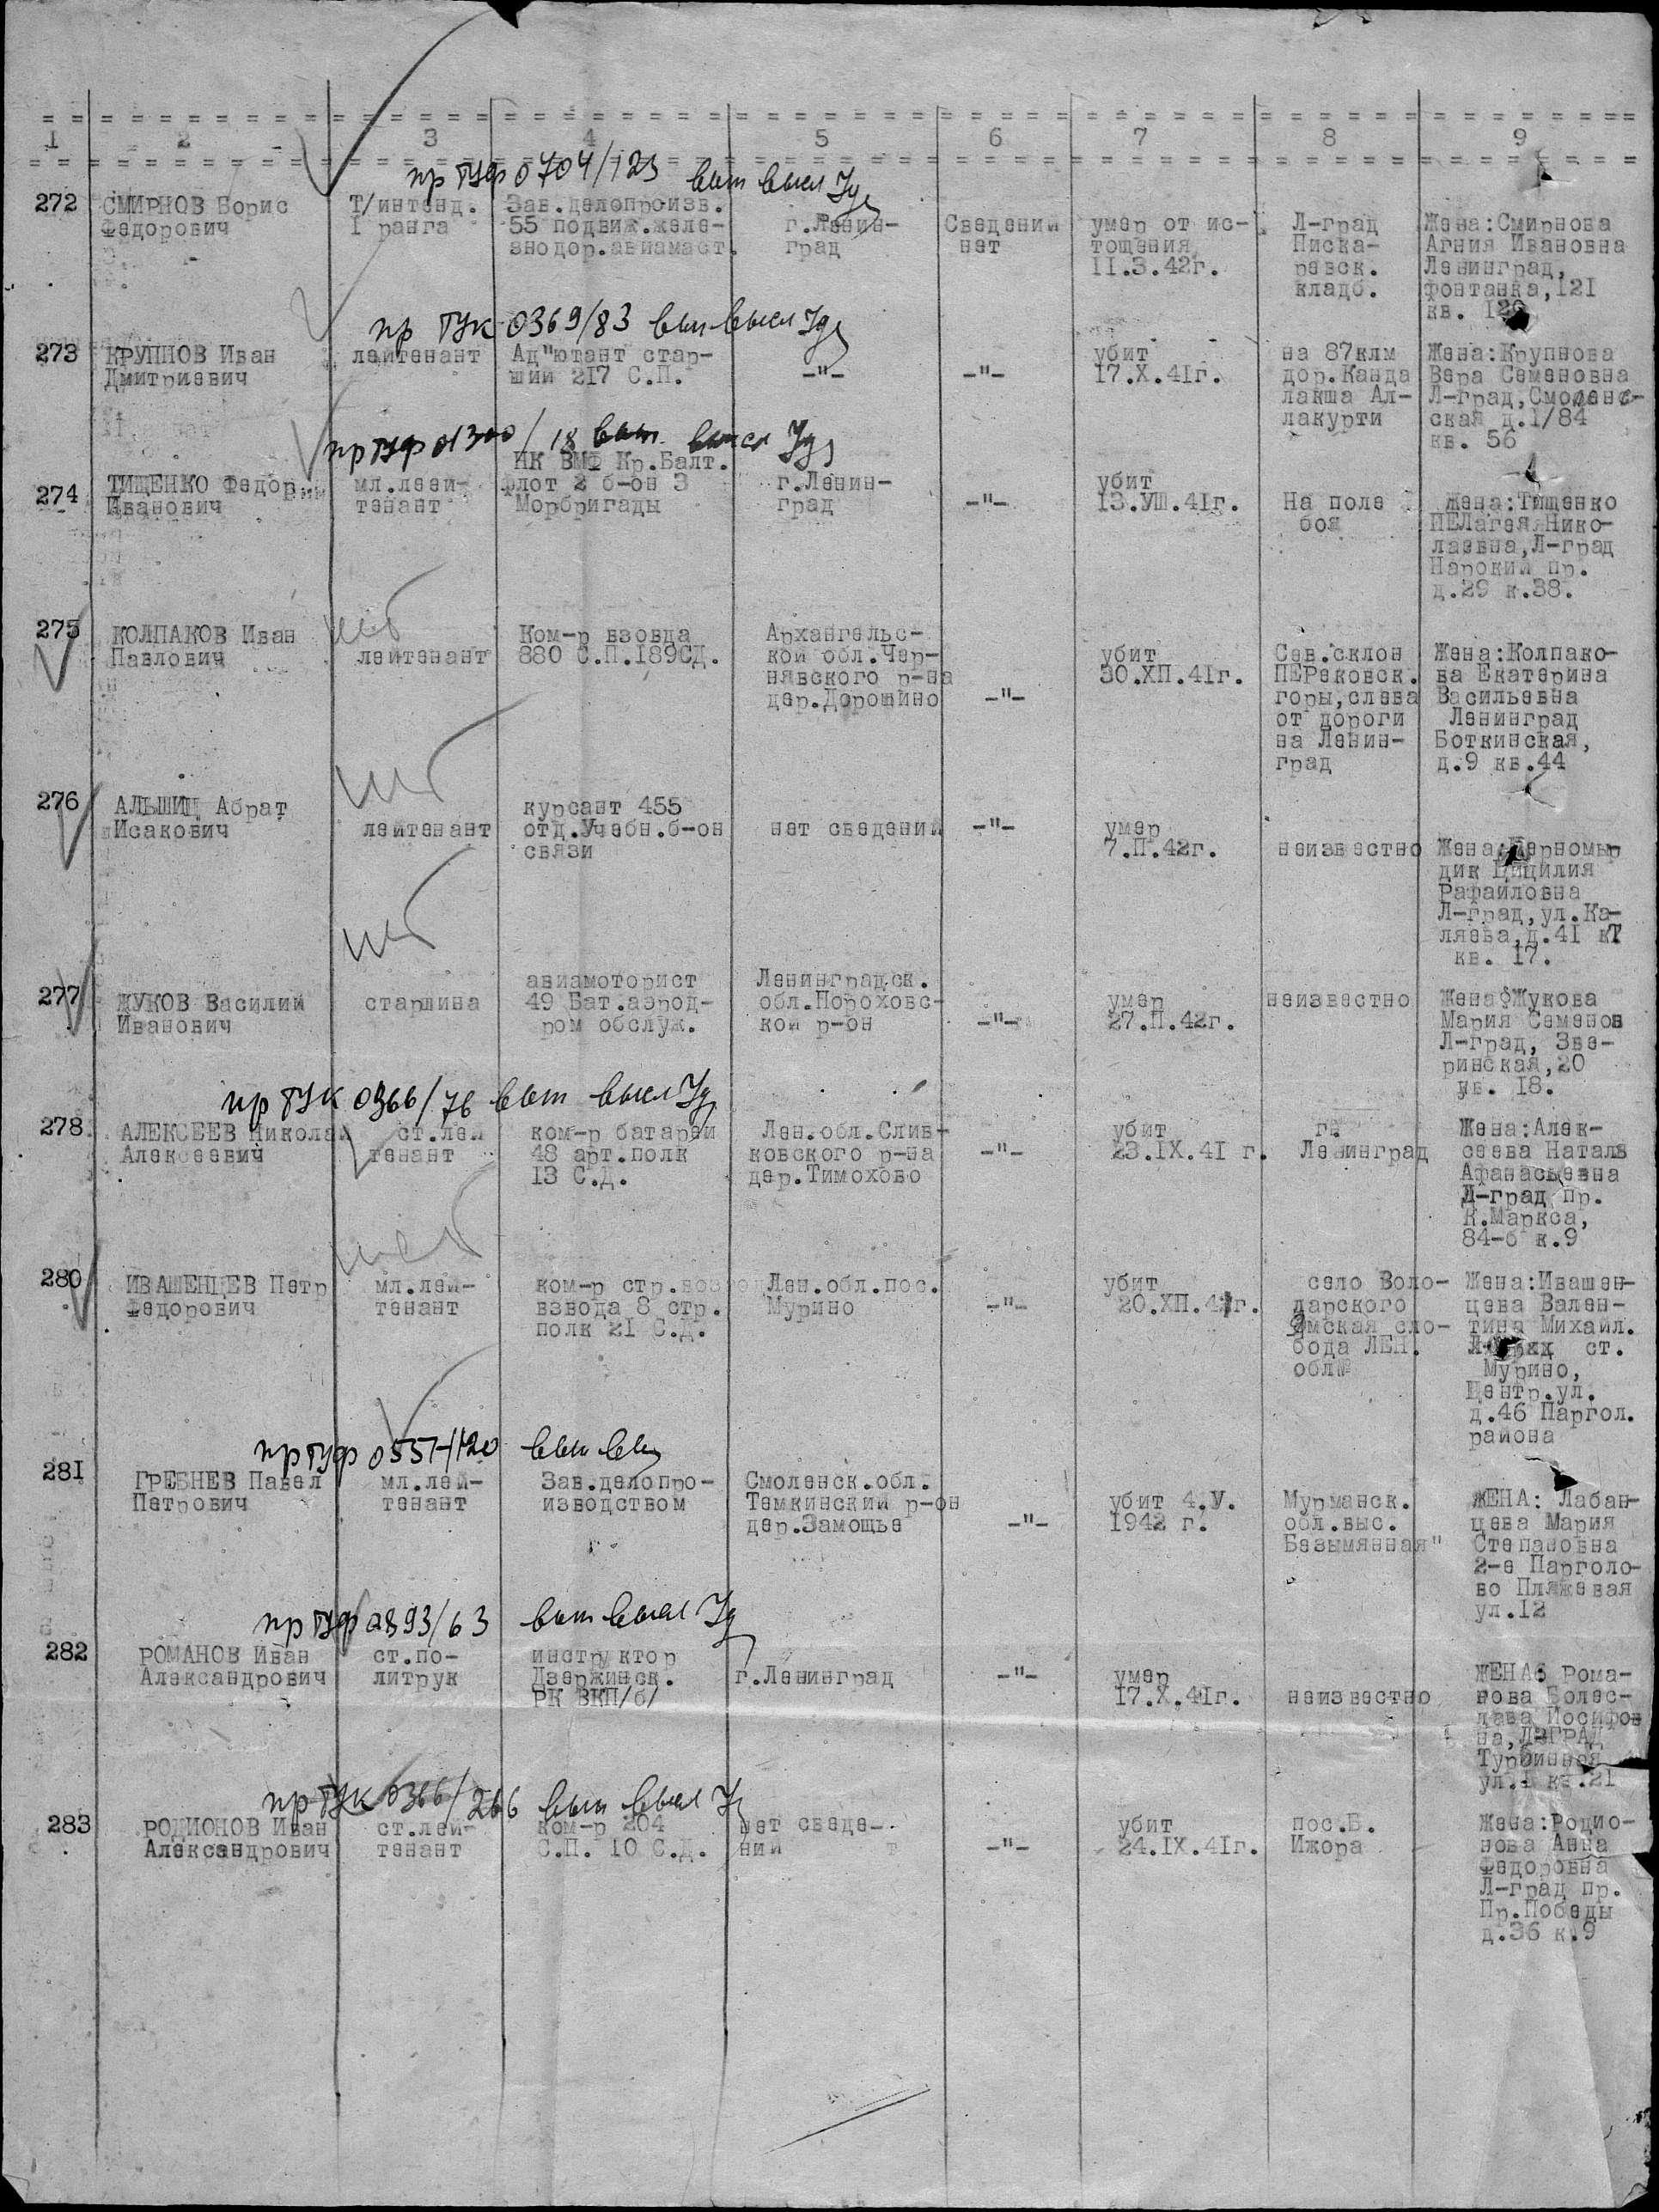 1 2 3 4 5 6 7 8 9
пр ГУФ 0704/123 вып высл
272 СМИРНОВ Борис Федорович
Т/интенд. I ранга
Зав.делопроизв. 55 подвиж.желе-
знодор.авиамаст.
г.Ленин-
град
Сведений
нет
умер от ис-
тощения
II.3.42г.
Л-град
Писка-
ревск.
кладб.
Жена:Смирнова
Агния Ивановна
Ленинград,
фонтанка,I2I
кв.
пр ГУК 0369/83 вып высл
273 КРУПНОВ Иван
Дмитриевич
лейтенант
Ад"ютант стар-
ший 2I7 С.П.
-"-
-"-
убит
I7.X.4Iг.
на 87клм
дор.Канда
лакша Ал-
лакурти
Жена:Крупнова
Вера Семеновна
Л-град,Смоленс-
ская д.1/84
кв. 56
пр ГУФ 01300/18 вып. высл
274 ТИЩЕНКО Федор
Иванович
мл.леей-
тенант
НК ВМФ Кр.Балт.
флот 2 б-он 3
Морбригады
г.Ленин-
град
-"-
убит
I3.УШ.4Iг.
На поле
боя
Жена:Тищенко
ПЕЛагея Нико-
лаевна,Л-град
Нарокий пр.
д.29 к.38.
275 КОЛПАКОВ Иван
Павлович
лейтенант
Ком-р взовда
880 С.П.I89СД.
Архангельс-
кой обл.Чер-
нявского р-на
дер.Дорошино
-"-
убит
30.ХП.4Iг.
Сев.склон
ПЕРековск.
горы,слева
от дороги
на Ленин-
град
Жена:Колпако-
ва Екатерина
Васильевна
Ленинград
Боткинская,
д.9 кв.44
276 АЛЬШИЦ Абрат
Исакович
лейтенант
курсант 455
отд.Учебн.б-он
связи
нет сведений
-"-
умер
7.П.42г.
неизвестно
Жена:Черномыр
дик Цицилия
Рафаиловна
Л-град,ул.Ка-
ляева,д.4I
кв. I7.
277 ЖУКОВ Василий
Иванович
старшина
авиамоторист
49 Бат.аэрод-
ром обслуж.
Ленинградск.
обл.Пороховс-
кой р-он
-"-
умер
27.П.42г.
неизвестно
Жена:Жукова
Мария Семенов
Л-град, Зве-
ринская,20
кв. I8.
пр ГУК 0366/76 вып высл
278. АЛЕКСЕЕВ Николай
Алексеевич
ст.лей
тенант
ком-р батареи
48 арт.полк
I3 С.Д.
Лен.обл.Слив-
ковского р-на
дер.Тимохово
-"-
убит
23.IX.4I г.
гр.
Ленинград
Жена:Алек-
сеева Наталь
Афанасьевна
Л-град пр.
К.Маркса,
84-б к.9
280 ИВАШЕНЦЕВ Петр
Федорович
мл.лей-
тенант
ком-р стр.
взвода 8 стр.
полк 2I С.Д.
Лен.обл.пос.
Мурино
-"-
убит
20.ХП.41г.
село Воло-
дарского
Ямская сло-
бода ЛЕН.
обл
Жена:Ивашен-
цева Вален-
тина Михайл.
ст.
Мурино,
Центр.ул.
д.46 Паргол.
района
пр ГУФ 0557/120 вып
28I ГРЕБНЕВ Павел
Петрович
мл.лей-
тенант
Зав.делопро-
изводством
Смоленск.обл.
Темкинский р-он
дер.Замощье
-"-
убит 4.У.
1942 г.
Мурманск.
обл.выс.
Безымянная"
ЖЕНА: Лабан-
цева Мария
Степановна
2-е Парголо-
во Пляжевая
ул.I2
пр ГУФ 0893/63 вып высл
282 РОМАНОВ Иван
Александрович
ст.по-
литрук
инструктор
Дзержинск.
РК ВКП/б/
г.Ленинград
-"-
умер
I7.X.4Iг.
неизвестно
ЖЕНА: Рома-
нова Болес-
лава Иосифов
на,Л-ГРАД
Турбинная
ул.1 кв.21
пр ГУК 0366/266 вып высл
283 РОДИОНОВ Иван
Александрович
ст.лей-
тенант
ком-р 204
С.П. IO С.Д.
нет сведе-
ний
-"-
убит
24.IX.4Iг.
пос.Б.
Ижора
Жена:Родио-
нова Анна
Федоровна
Л-град пр.
Пр.Победы
д.36 к.9